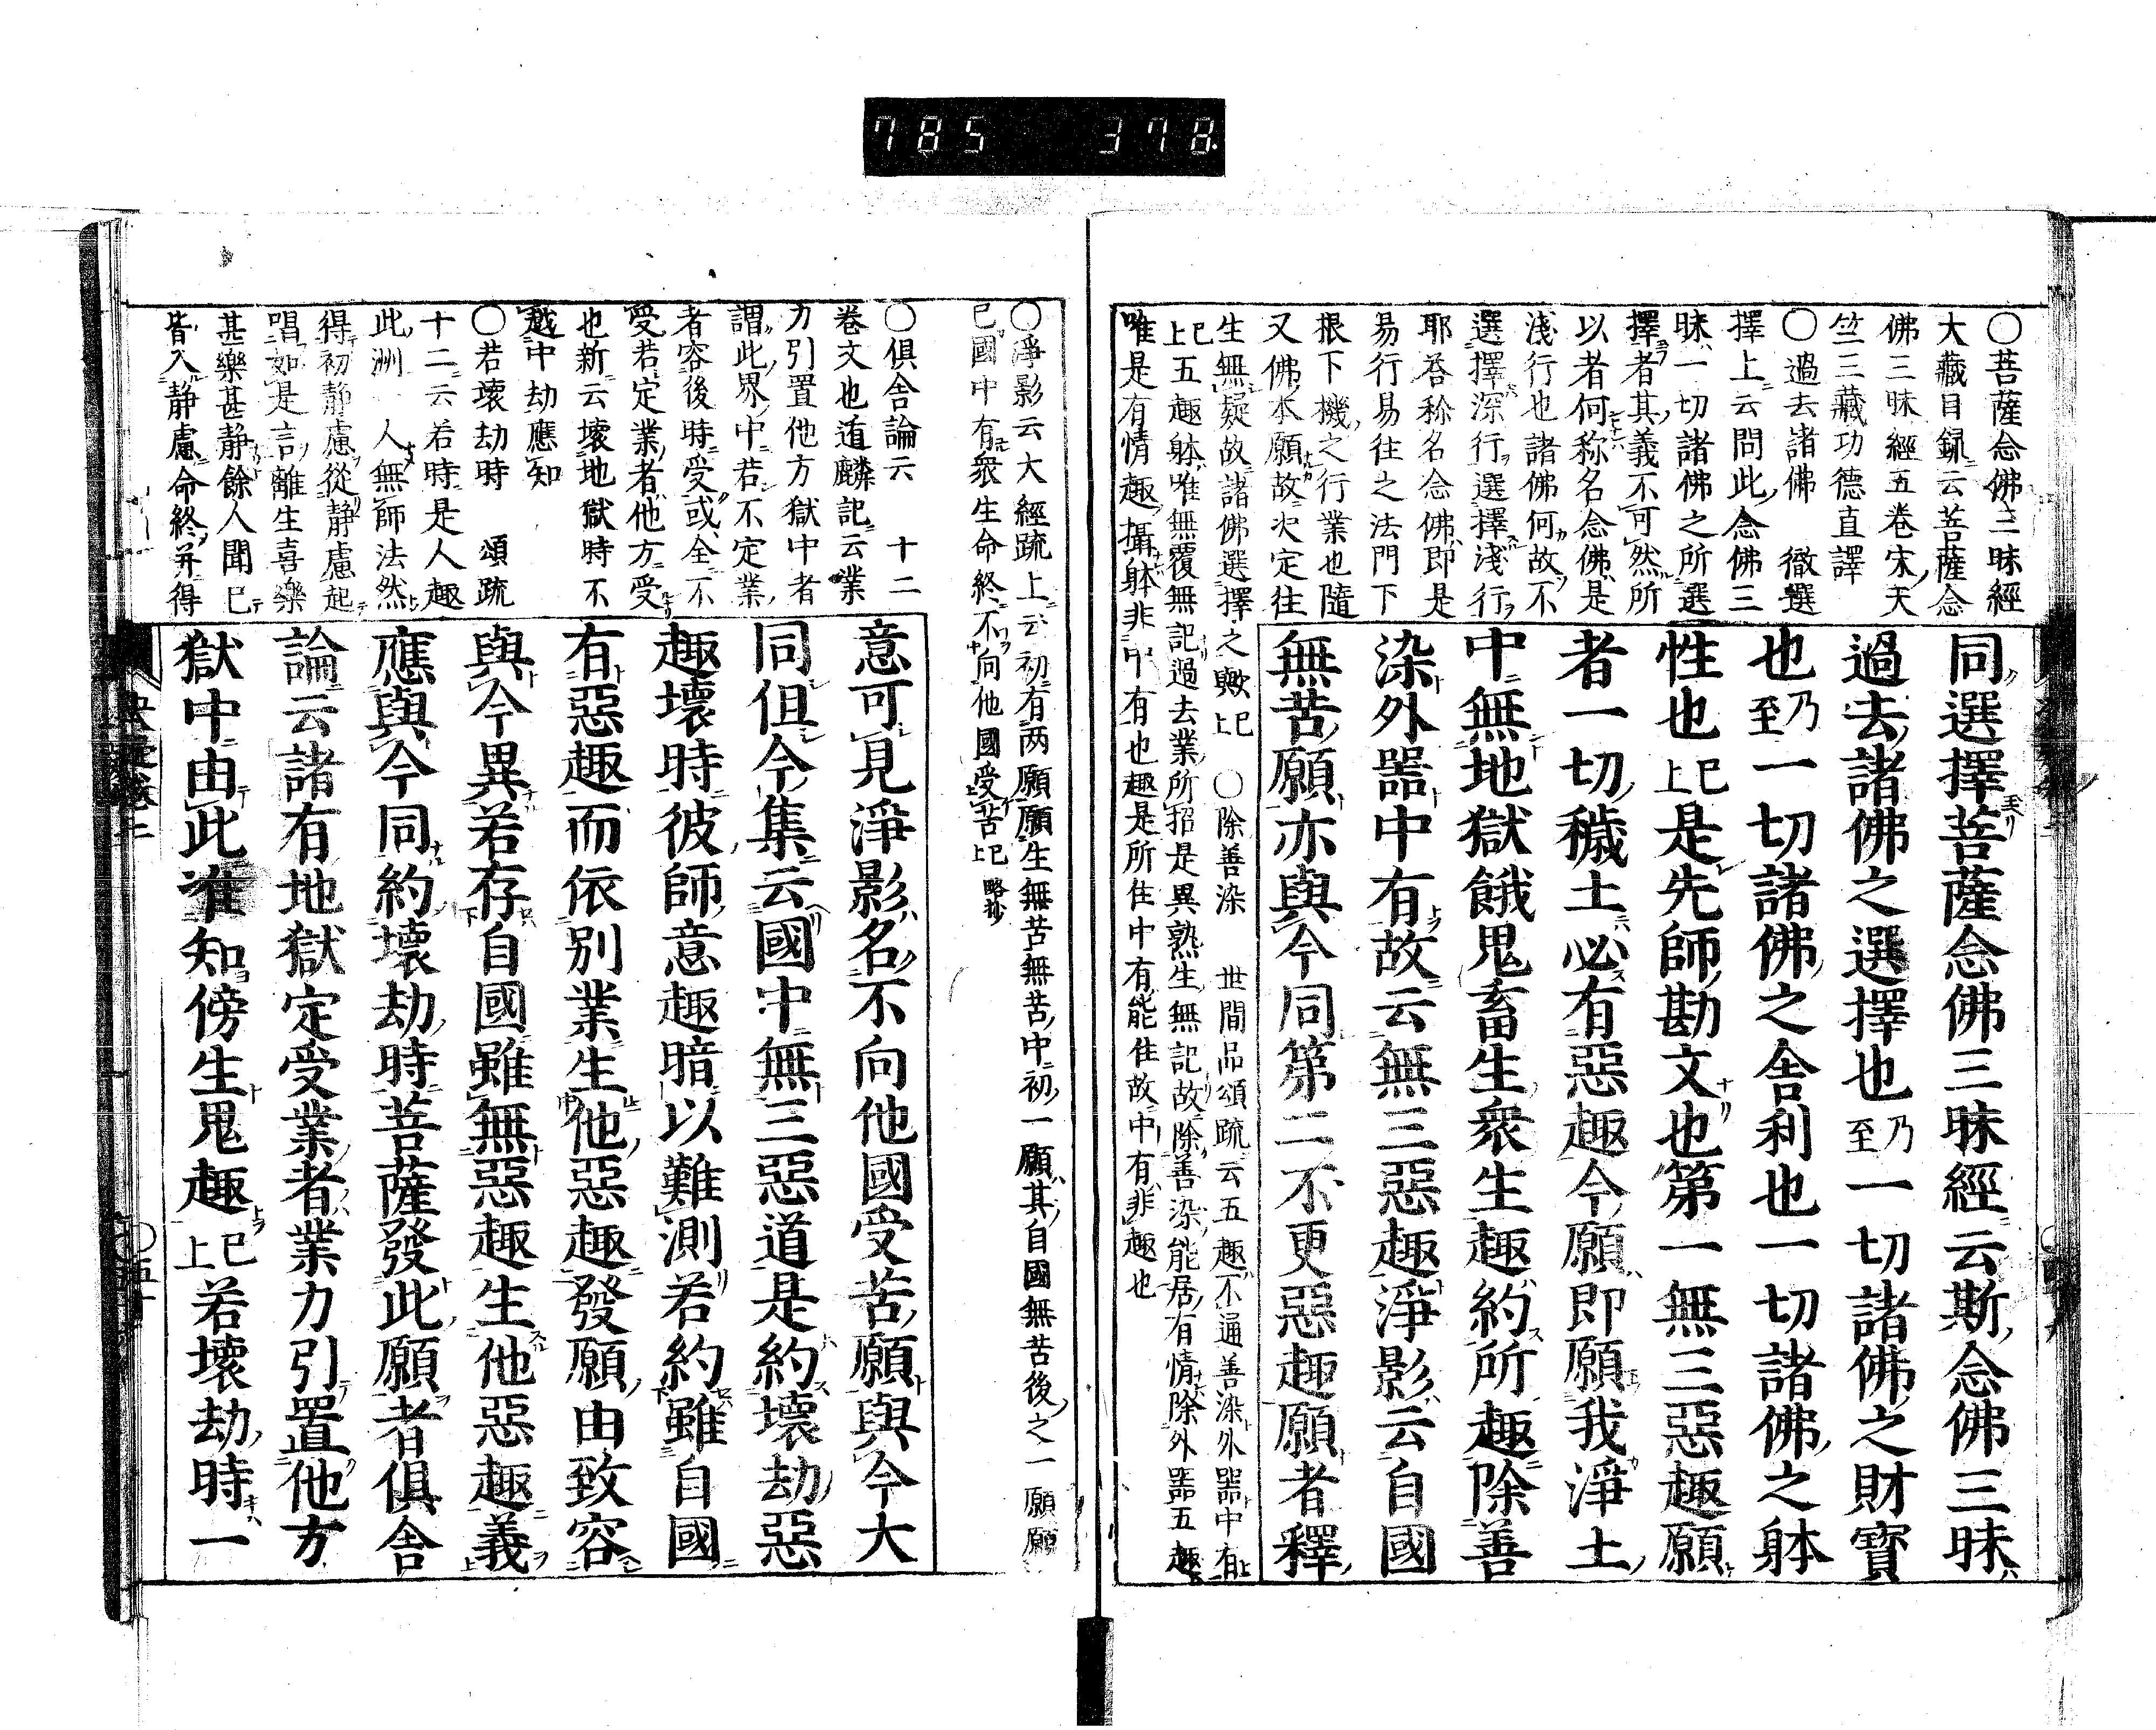 785 378
〇菩薩念佛三昧經
大藏目録云菩薩念
佛三昧經五卷宋天
竺三藏功德直譯
〇過去諸佛 徹選
擇上云問此念佛三
昧一切諸佛之所選
擇者其義不可然所
以者何称名念佛是
淺行也諸佛何故不
選擇深行選擇淺行
耶荅称名念佛即是
易行易往之法門下
根下機之行業也隨
又佛本願故次定往
生無疑故諸佛選擇之歟已上 〇除善染 世間品頌疏云五趣不通善染外器中有
已上五趣躰唯無覆無記過去業所招是異熟生無記故除善染能居有情除外器五趣
唯是有情趣攝躰非中有也趣是所住中有能住故中有非趣也
同選擇菩薩念佛三昧經云斯念佛三昧
過去諸佛之選擇也乃至一切諸佛之財寳
也乃至一切諸佛之舎利也一切諸佛之躰
性也已上是先師勘文也第一無三惡趣願
者一切穢土必有惡趣今願即願我淨土
中無地獄餓鬼畜生衆生趣約所趣除善
染外器中有故云無三惡趣淨影云自國
無苦願亦與今同第二不更惡趣願者釋
〇淨影云大經疏上云初有两願願生無苦無苦中初一願其自國無苦後之一願願
已國中有衆生命終不向他國受苦已上略抄
〇俱舍論云 十二
卷文也遁麟記云業
力引置他方獄中者
謂此界中若不定業
者容後時受或全不
受若定業者他方受
也新云壞地獄時不
越中劫應知
〇若壞劫時 頌疏
十二云若時是人趣
此洲一人無師法然
得初静慮從静慮起
唱如是言離生喜樂
甚樂甚静餘人聞已
皆入静慮命終并得
意可見淨影名不向他國受苦願與今大
同但今集云國中無三惡道是約壞劫惡
趣壞時彼師意趣暗以難測若約雖自國
有惡趣而依別業生他惡趣發願由致容
與今異若存自國雖無惡趣生他惡趣義
應與今同約壞劫時菩薩發此願者俱舎
論云諸有地獄定受業者業力引置他方
獄中由此准知傍生鬼趣已上若壞劫時一